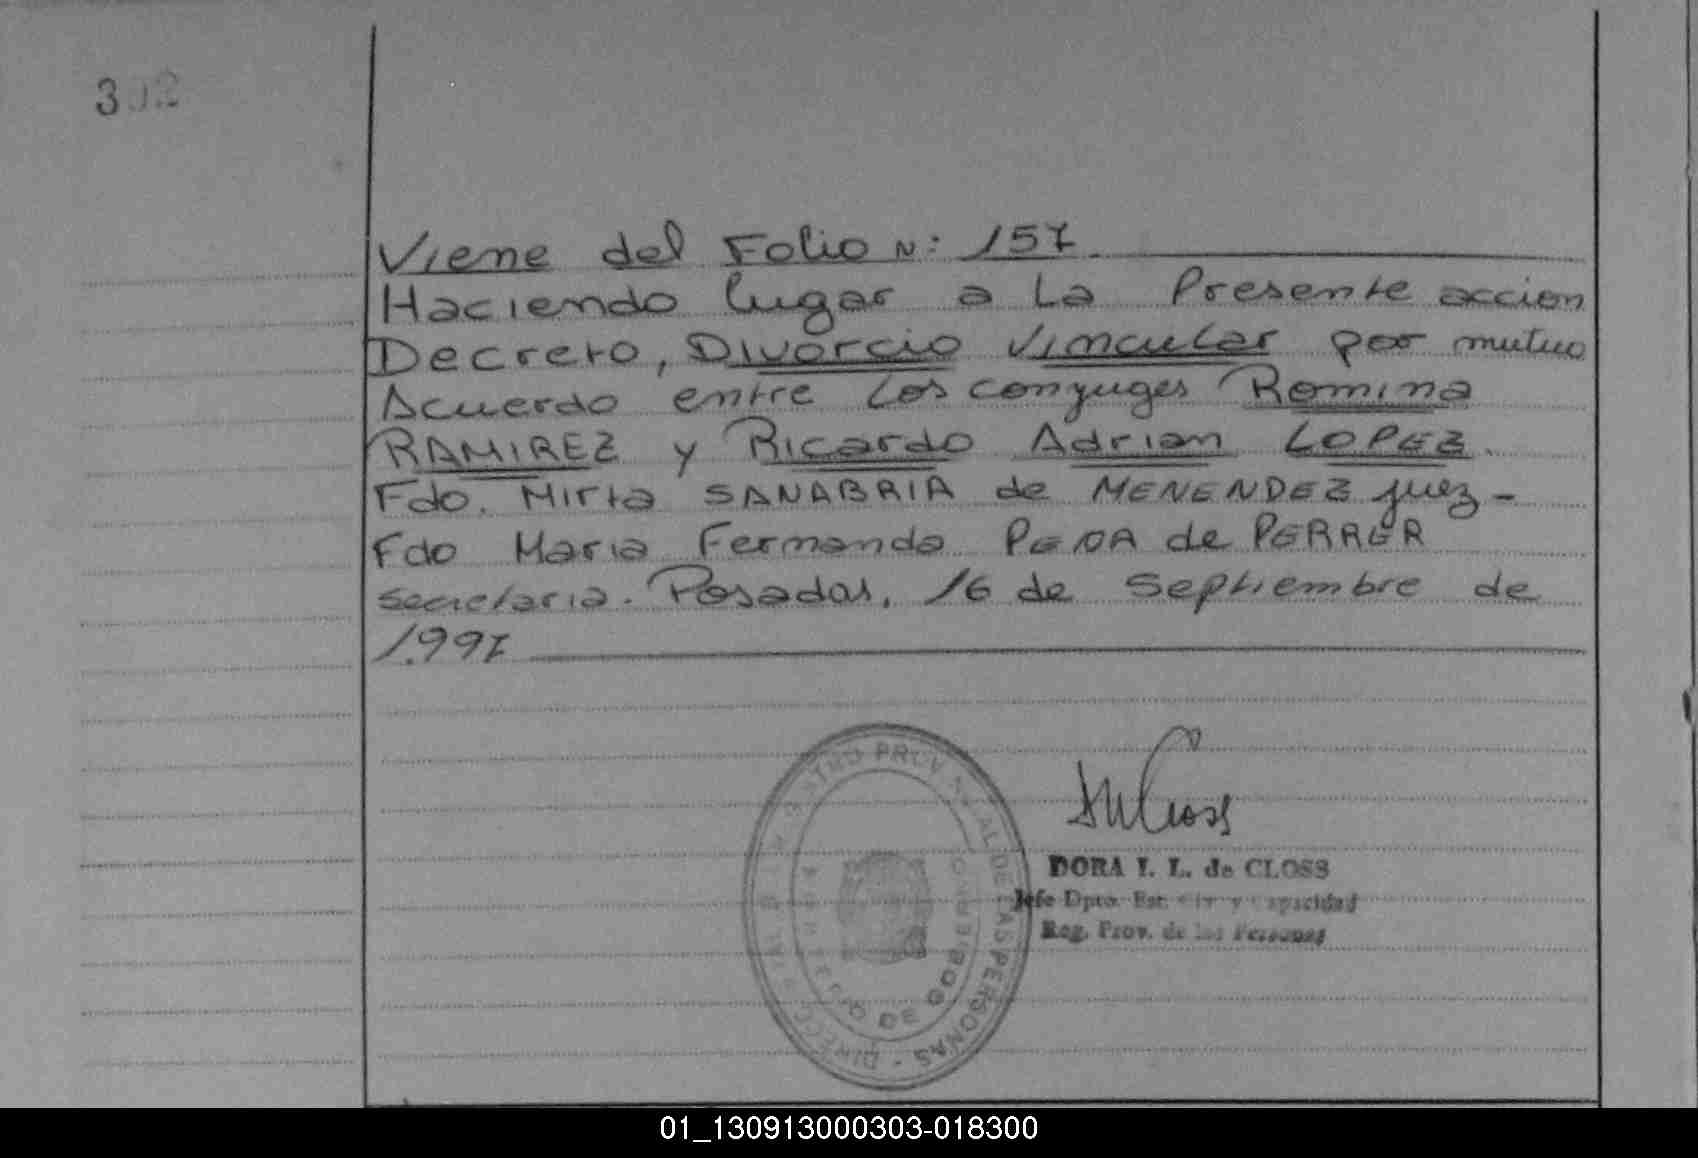 302
Viene del Folio N: 157.
Haciendo lugar a La Presente accion
Decreto, Divorcio Vincular por mutuo
Acuerdo entre Los conyuges Romina
RAMIREZ y Ricardo Adrian LOPEZ.
Fdo. Mirta SANABRIA de MENENDEZ juez-
Fdo Maria Fernanda de PERRER
secretaria. Posadas, 16 de Septiembre de
1.997
DORA I. L. de CLOSS
Jefe Dpto. Est. Civ y Capacidad
Reg. Prov. de las Personas
PERSONAS
01_130913000303-018300